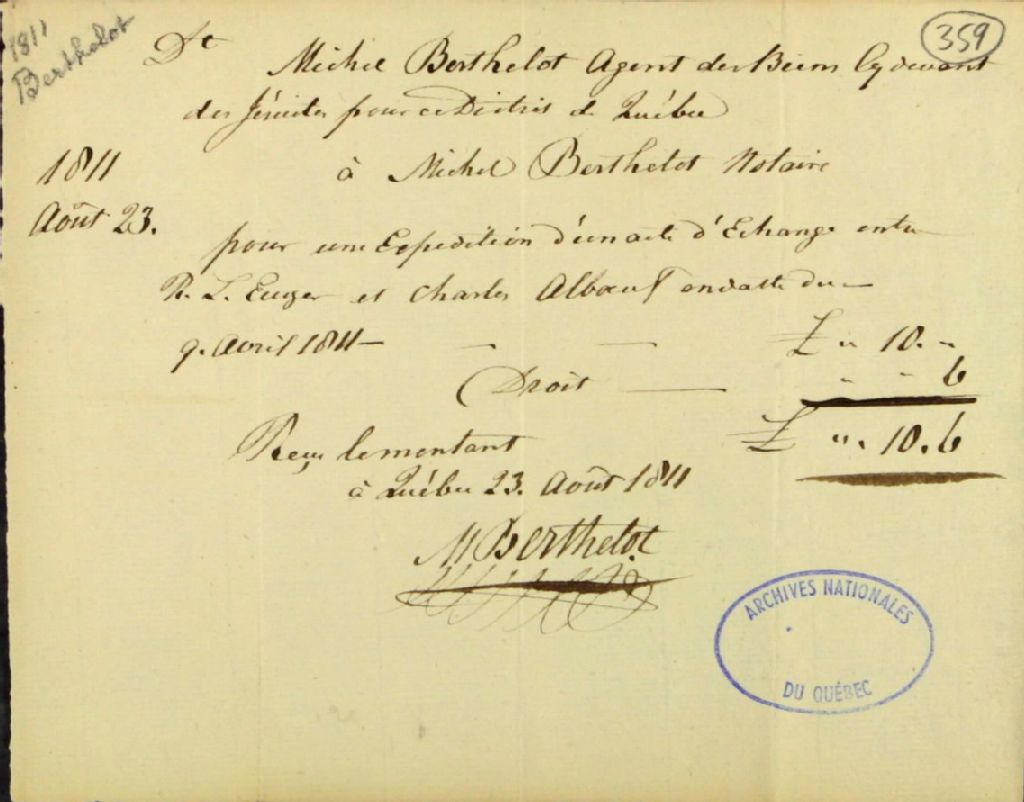 1811
Berthelot
359
Dt Michel Berthelot Agent des Biens Cy devant
des Jésuites pour ce District de Québec
1811 à Michel Berthelot Notaire
Août 23.
pour une Expedition d'un acte d'Echange entre
P. L. et Charles Alboeuf en datte du
9. Avril 1811 £ " 10. "
Droit " " 6
£ " 10. 6
Reçu le montant
à Québec 23. Août 1811
M Berthelot
ARCHIVES NATIONALES
DU QUÉBEC